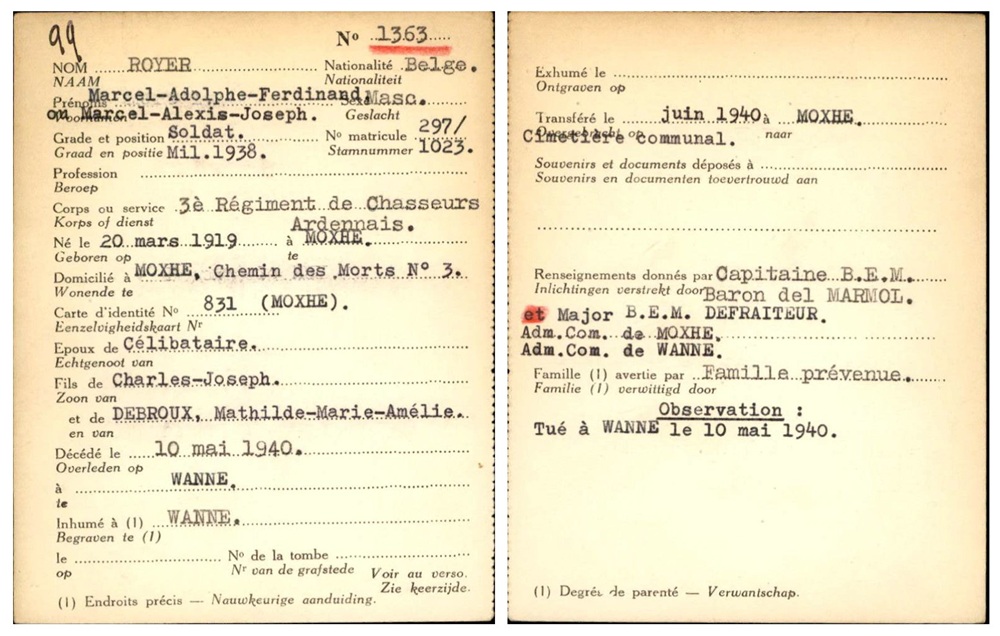 99
Nº 1363
NOM ROYER Nationalité Belge.
NAAM Nationaliteit
Prénoms Marcel-Adolphe-Ferdinand Sexe Masc.
Voornamen ou Marcel-Alexis-Joseph. Geslacht
Grade et position Soldat. Nº matricule 297/
Graad en positie Mil.1938. Stamnummer 1023.
Profession
Beroep
Corps ou service 3è Régiment de Chasseurs
Korps of dienst Ardennais.
Né le 20 mars 1919 à MOXHE.
Geboren op te
Domicilié à MOXHE, Chemin des Morts Nº 3.
Wonende te
Carte d'identité Nº 831 (MOXHE).
Eenzelvigheidskaart Nr
Epoux de Célibataire.
Echtgenoot van
Fils de Charles-Joseph.
Zoon van
et de DEBROUX, Mathilde-Marie-Amélie.
en van
Décédé le 10 mai 1940.
Overleden op
à WANNE.
te
Inhumé à (1) WANNE.
Begraven te (1)
le Nº de la tombe
op Nr van de grafstede Voir au verso.
Zie keerzijde.
(1) Endroits précis — Nauwkeurige aanduiding.
Exhumé le
Ontgraven op
Transféré le juin 1940 à MOXHE.
Overgebracht op naar
Cimetière communal.
Souvenirs et documents déposés à
Souvenirs en documenten toevertrouwd aan
Renseignements donnés par Capitaine B.E.M.
Inlichtingen verstrekt door Baron del MARMOL.
et Major B.E.M. DEFRAITEUR.
Adm.Com. de MOXHE.
Adm.Com. de WANNE.
Famille (1) avertie par Famille prévenue.
Familie (1) verwittigd door
Observation :
Tué à WANNE le 10 mai 1940.
(1) Degré de parenté — Verwantschap.